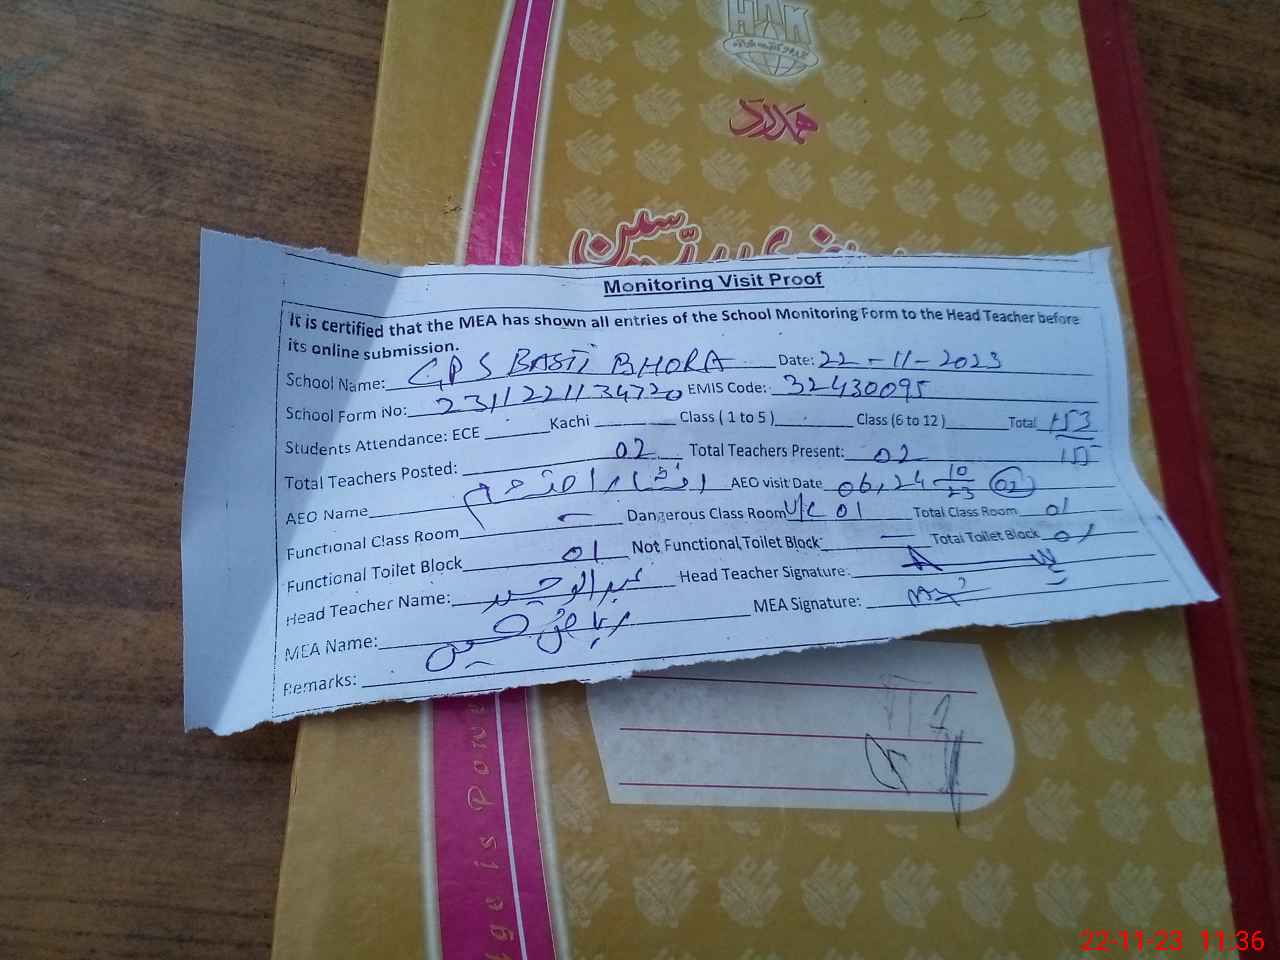 HAK
ہمدرد
Monitoring Visit Proof
It is certified that the MEA has shown all entries of the School Monitoring Form to the Head Teacher before
its online submission.
School Name: GPS BASTI BHORA Date: 22-11-2023
School Form No: 2311221134720 EMIS Code: 32430095
Students Attendance: ECE Kachi Class ( 1 to 5 ) Class (6 to 12 ) Total 153
155
Total Teachers Posted: 02 Total Teachers Present: 02
AEO Name AEO visit Date 06, 24 10/23 02
Functional Class Room — Dangerous Class Room U/C 01 Total Class Room 01
Functional Toilet Block 01 Not Functional Toilet Block: — Total Toilet Block 01
Head Teacher Name: عبدالوحید Head Teacher Signature:
MEA Name: MEA Signature:
Remarks:
ge is Power
22-11-23 11:36